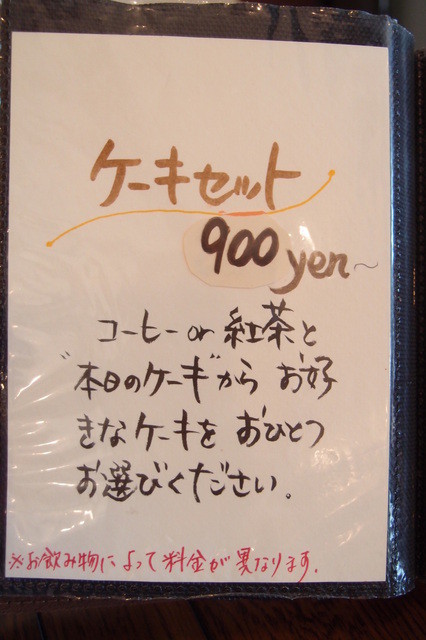 ケーキセット
900yen～
コーヒー or 紅茶と
"本日のケーキ"から お好
きなケーキを おひとつ
お選びください。
※お飲み物によって料金が異なります.